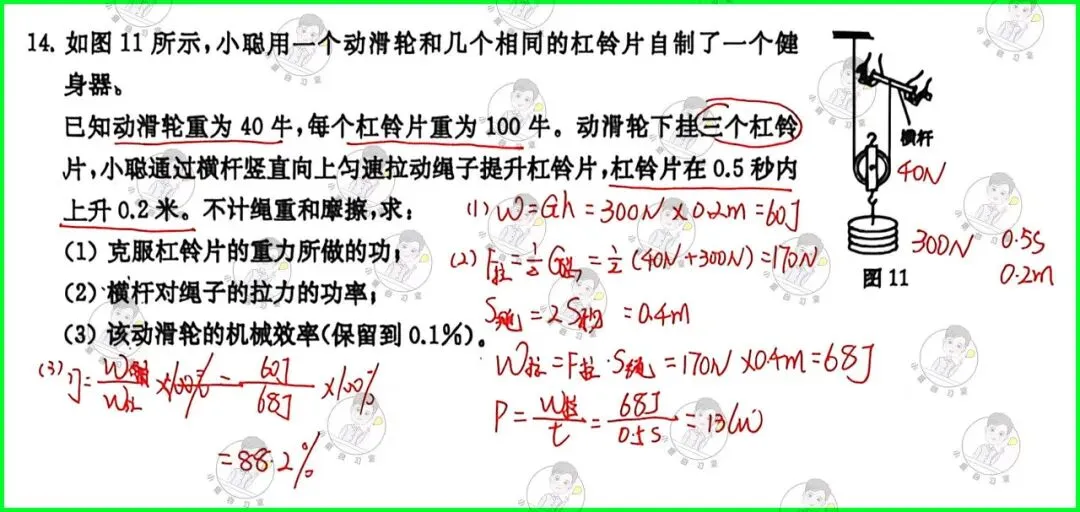 14. 如图 11 所示,小聪用一个动滑轮和几个相同的杠铃片自制了一个健
身器。
已知动滑轮重为 40 牛,每个杠铃片重为 100 牛。动滑轮下挂三个杠铃
片,小聪通过横杆竖直向上匀速拉动绳子提升杠铃片,杠铃片在 0.5 秒内
上升 0.2 米。不计绳重和摩擦,求:
(1) 克服杠铃片的重力所做的功;
(2) 横杆对绳子的拉力的功率;
(3) 该动滑轮的机械效率(保留到 0.1%)。
横杆
40N
300N
0.5s
0.2m
图 11
(1) W=Gh=300N×0.2m=60J
(2) F拉=½G总=½(40N+300N)=170N
S绳=2S物=0.4m
W拉=F拉·S绳=170N×0.4m=68J
P=W拉/t=68J/0.5s=136W
(3) η= ×100%=60J/68J×100%
=88.2%
小 聪 自 习 室